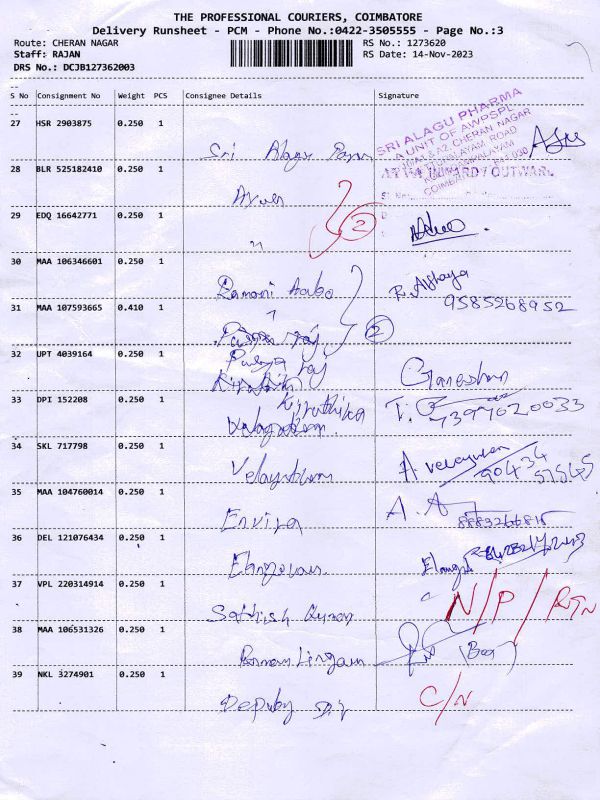 THE PROFESSIONAL COURIERS, COIMBATORE
Delivery Runsheet - PCM - Phone No.:0422-3505555 - Page No.:3
Route: CHERAN NAGAR
RS No.: 1273620
Staff: RAJAN
RS Date: 14-Nov-2023
DRS No.: DCJB127362003
S No Consignment No Weight PCS Consignee Details Signature
27 HSR 2903875 0.250 1
Sri Alagu
SRI ALAGU PHARMA
A UNIT OF AWPSPL
CHERAN NAGAR
28 BLR 525182410 0.250 1
INWARD / OUTWARD
29 EDQ 16642771 0.250 1
"
2
30 MAA 106346601 0.250 1
Ramani
R. Aishaya
9585268952
31 MAA 107593665 0.410 1
2
32 UPT 4039164 0.250 1
Ganeshan
33 DPI 152208 0.250 1
Kiruthika
7397620033
34 SKL 717798 0.250 1
Velayutham
A velayutham
90434
57545
35 MAA 104760014 0.250 1
Envira
A. A
36 DEL 121076434 0.250 1
Elangovan
37 VPL 220314914 0.250 1
Sathish Kumar
N/P/RTN
38 MAA 106531326 0.250 1
Raman Lingam
39 NKL 3274901 0.250 1
Deputy Dir
C/N